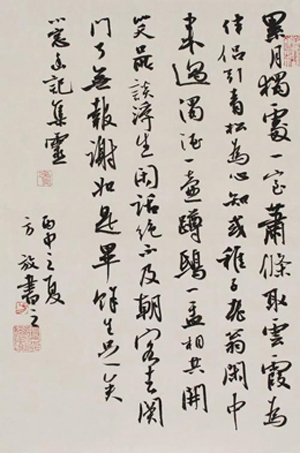 累月獨處一室蕭條取雲霞為
伴侶引青松為心知或稚子老翁闲中
来過濁酒一壺蹲鴟一盂相共開
笑談浮生闲話绝不及朝客去関
門了無報謝如是畢餘生足矣
小窓幽記集靈
丙申之夏
方放書之